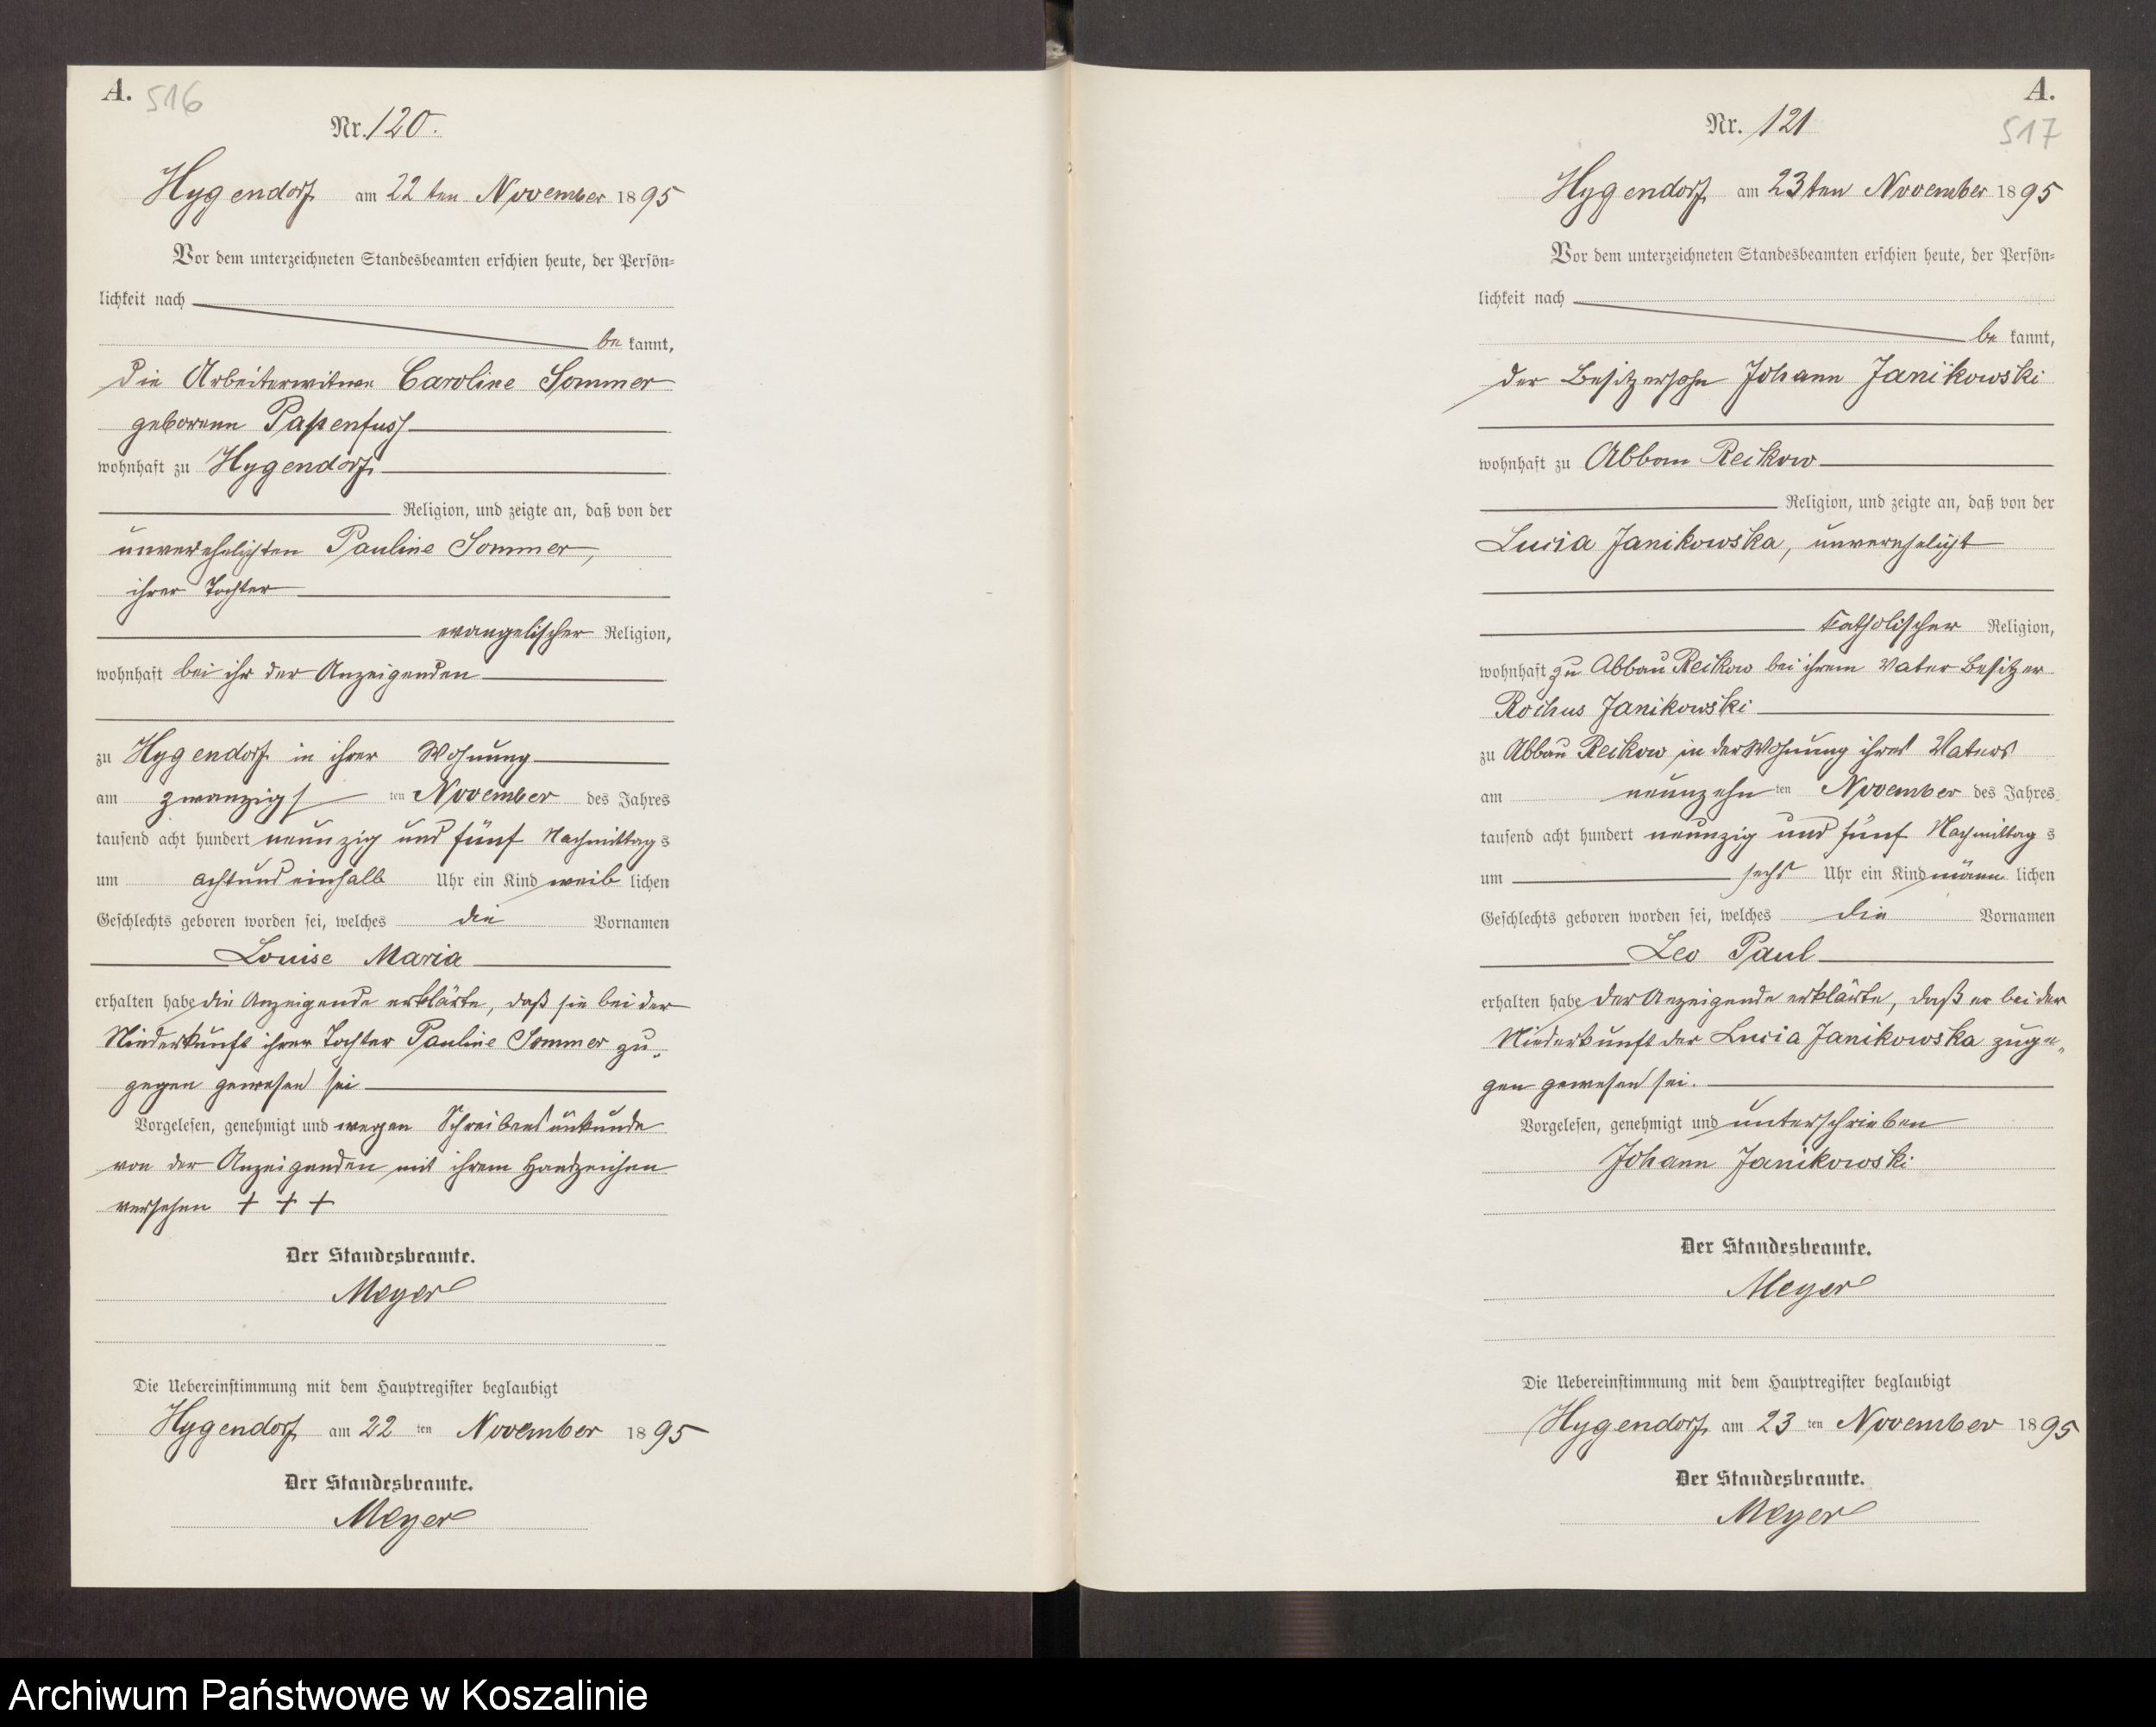 A. 516
Nr. 120.
Hygendorf am 22ten November 1895
Vor dem unterzeichneten Standesbeamten erschien heute, der Persön=
lichkeit nach
be kannt,
die Arbeiterwitwe Caroline Sommer
geborene Papenfuss
wohnhaft zu Hygendorf
Religion, und zeigte an, daß von der
unverehelichten Pauline Sommer,
ihrer Tochter
evangelischer Religion,
wohnhaft bei ihr der Anzeigenden
zu Hygendorf in ihrer Wohnung
am zwanzigs ten November des Jahres
tausend acht hundert neunzig und fünf Nachmittags
um achtundeinhalb Uhr ein Kind weib lichen
Geschlechts geboren worden sei, welches die Vornamen
Louise Maria
erhalten habe die Anzeigende erklärte, daß sie bei der
Niederkunft ihrer Tochter Pauline Sommer zu„
gegen gewesen sei
Vorgelesen, genehmigt und wegen Schreibensunkunde
von der Anzeigenden mit ihrem Handzeichen
versehen + + +
Der Standesbeamte.
Meyer
Die Uebereinstimmung mit dem Hauptregister beglaubigt
Hygendorf am 22 ten November 1895
Der Standesbeamte.
Meyer
A.
517
Nr. 121
Hygendorf am 23ten November 1895
Vor dem unterzeichneten Standesbeamten erschien heute, der Persön=
lichkeit nach
be kannt,
der Besitzersohn Johann Janikowski
wohnhaft zu Abbau Reikow
Religion, und zeigte an, daß von der
Lucia Janikowska, unverehelicht
katholischer Religion,
wohnhaft zu Abbau Reikow bei ihrem Vater Besitzer
Rochus Janikowski
zu Abbau Reikow in der Wohnung ihres Vaters
am neunzehn ten November des Jahres
tausend acht hundert neunzig und fünf Nachmittag s
um sechs Uhr ein Kind männ lichen
Geschlechts geboren worden sei, welches die Vornamen
Leo Paul
erhalten habe der Anzeigende erklärte, daß er bei der
Niederkunft der Lucia Janikowska zuge„
gen gewesen sei.
Vorgelesen, genehmigt und unterschrieben
Johann Janikowski
Der Standesbeamte.
Meyer
Die Uebereinstimmung mit dem Hauptregister beglaubigt
Hygendorf am 23 ten November 1895
Der Standesbeamte.
Meyer
Archiwum Państwowe w Koszalinie